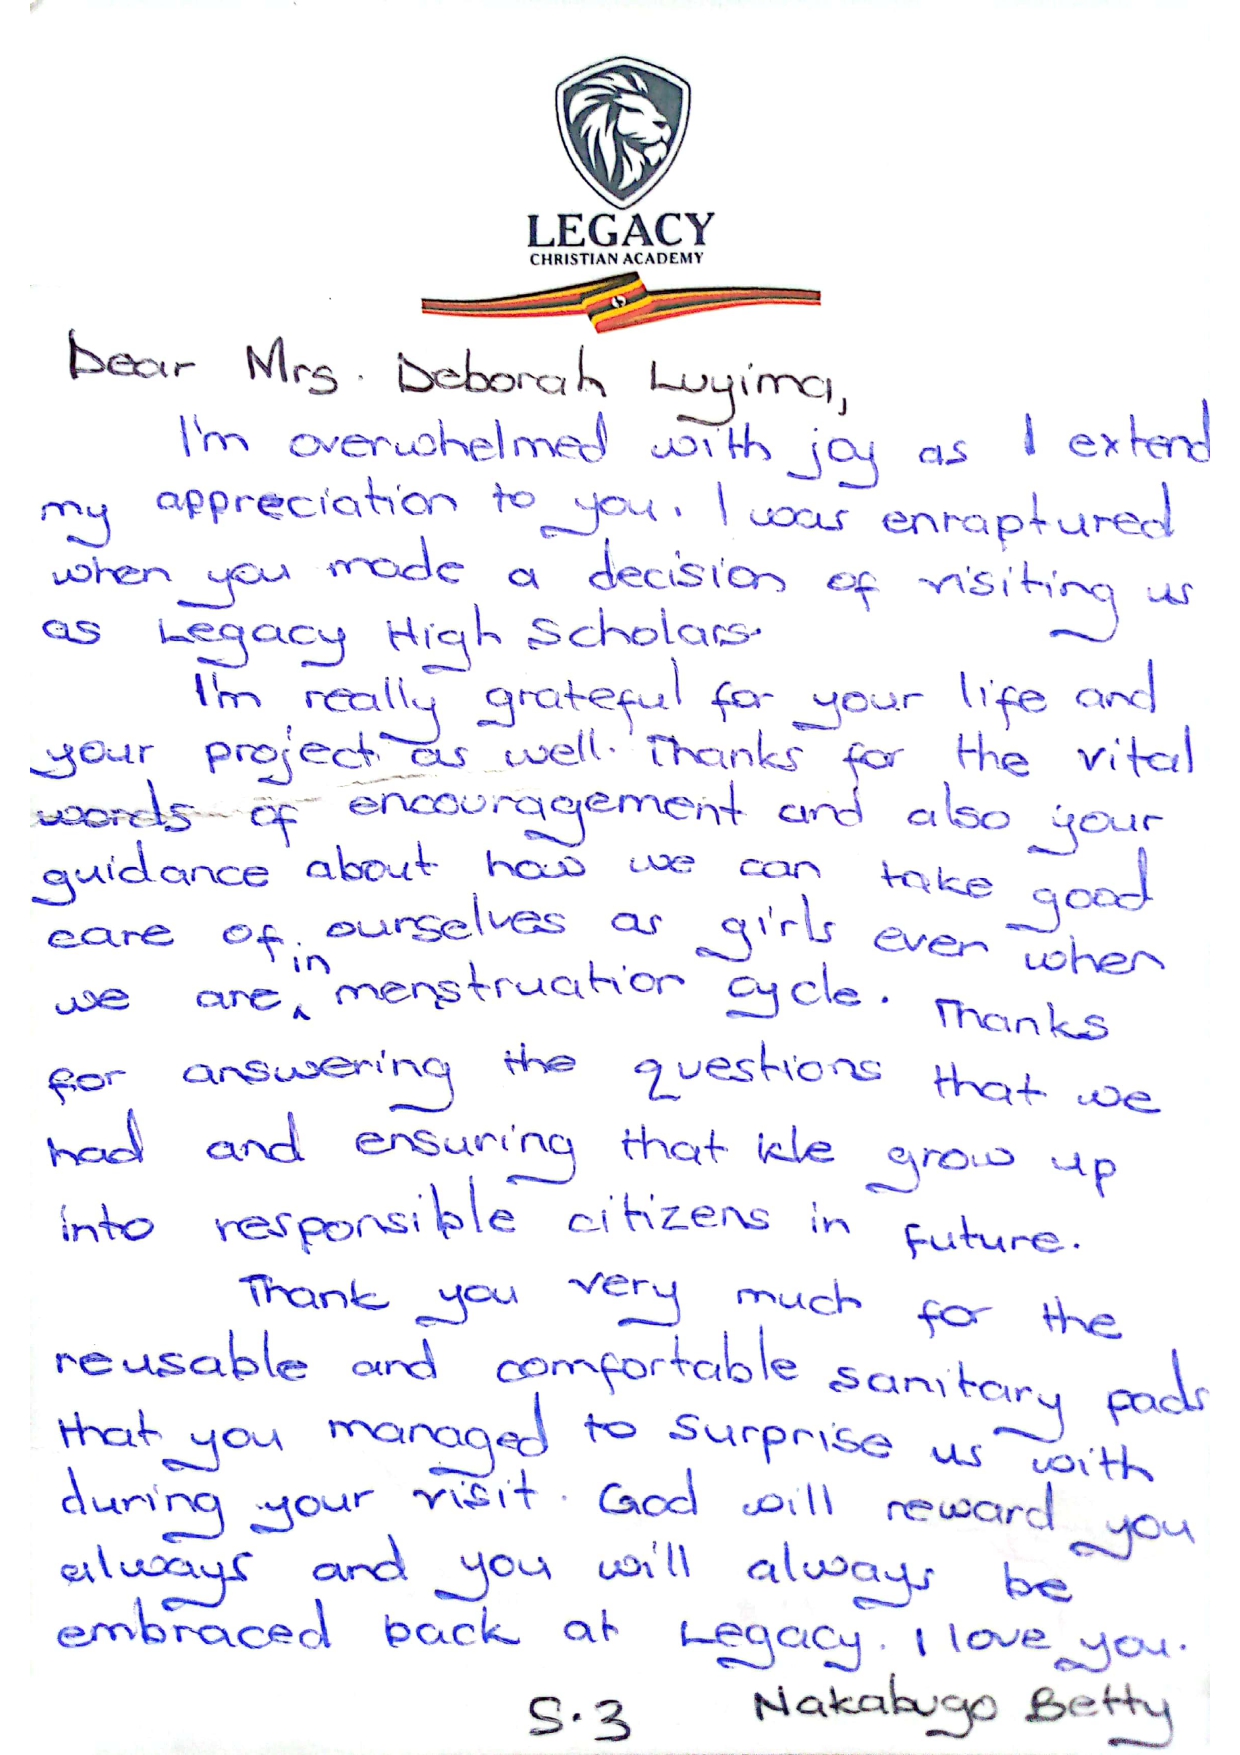 LEGACY
CHRISTIAN ACADEMY
Dear Mrs. Deborah Luyima,
I'm overwhelmed with joy as I extend
my appreciation to you. I was enraptured
when you made a decision of visiting us
as Legacy High Scholars.
I'm really grateful for your life and
your project as well. Thanks for the vital
words of encouragement and also your
guidance about how we can take good
care of ourselves as girls even when
we are in menstruation cycle. Thanks
for answering the questions that we
had and ensuring that We grow up
into responsible citizens in future.
Thank you very much for the
reusable and comfortable sanitary pads
that you managed to surprise us with
during your visit. God will reward you
always and you will always be
embraced back at Legacy. I love you.
S.3 Nakabugo Betty